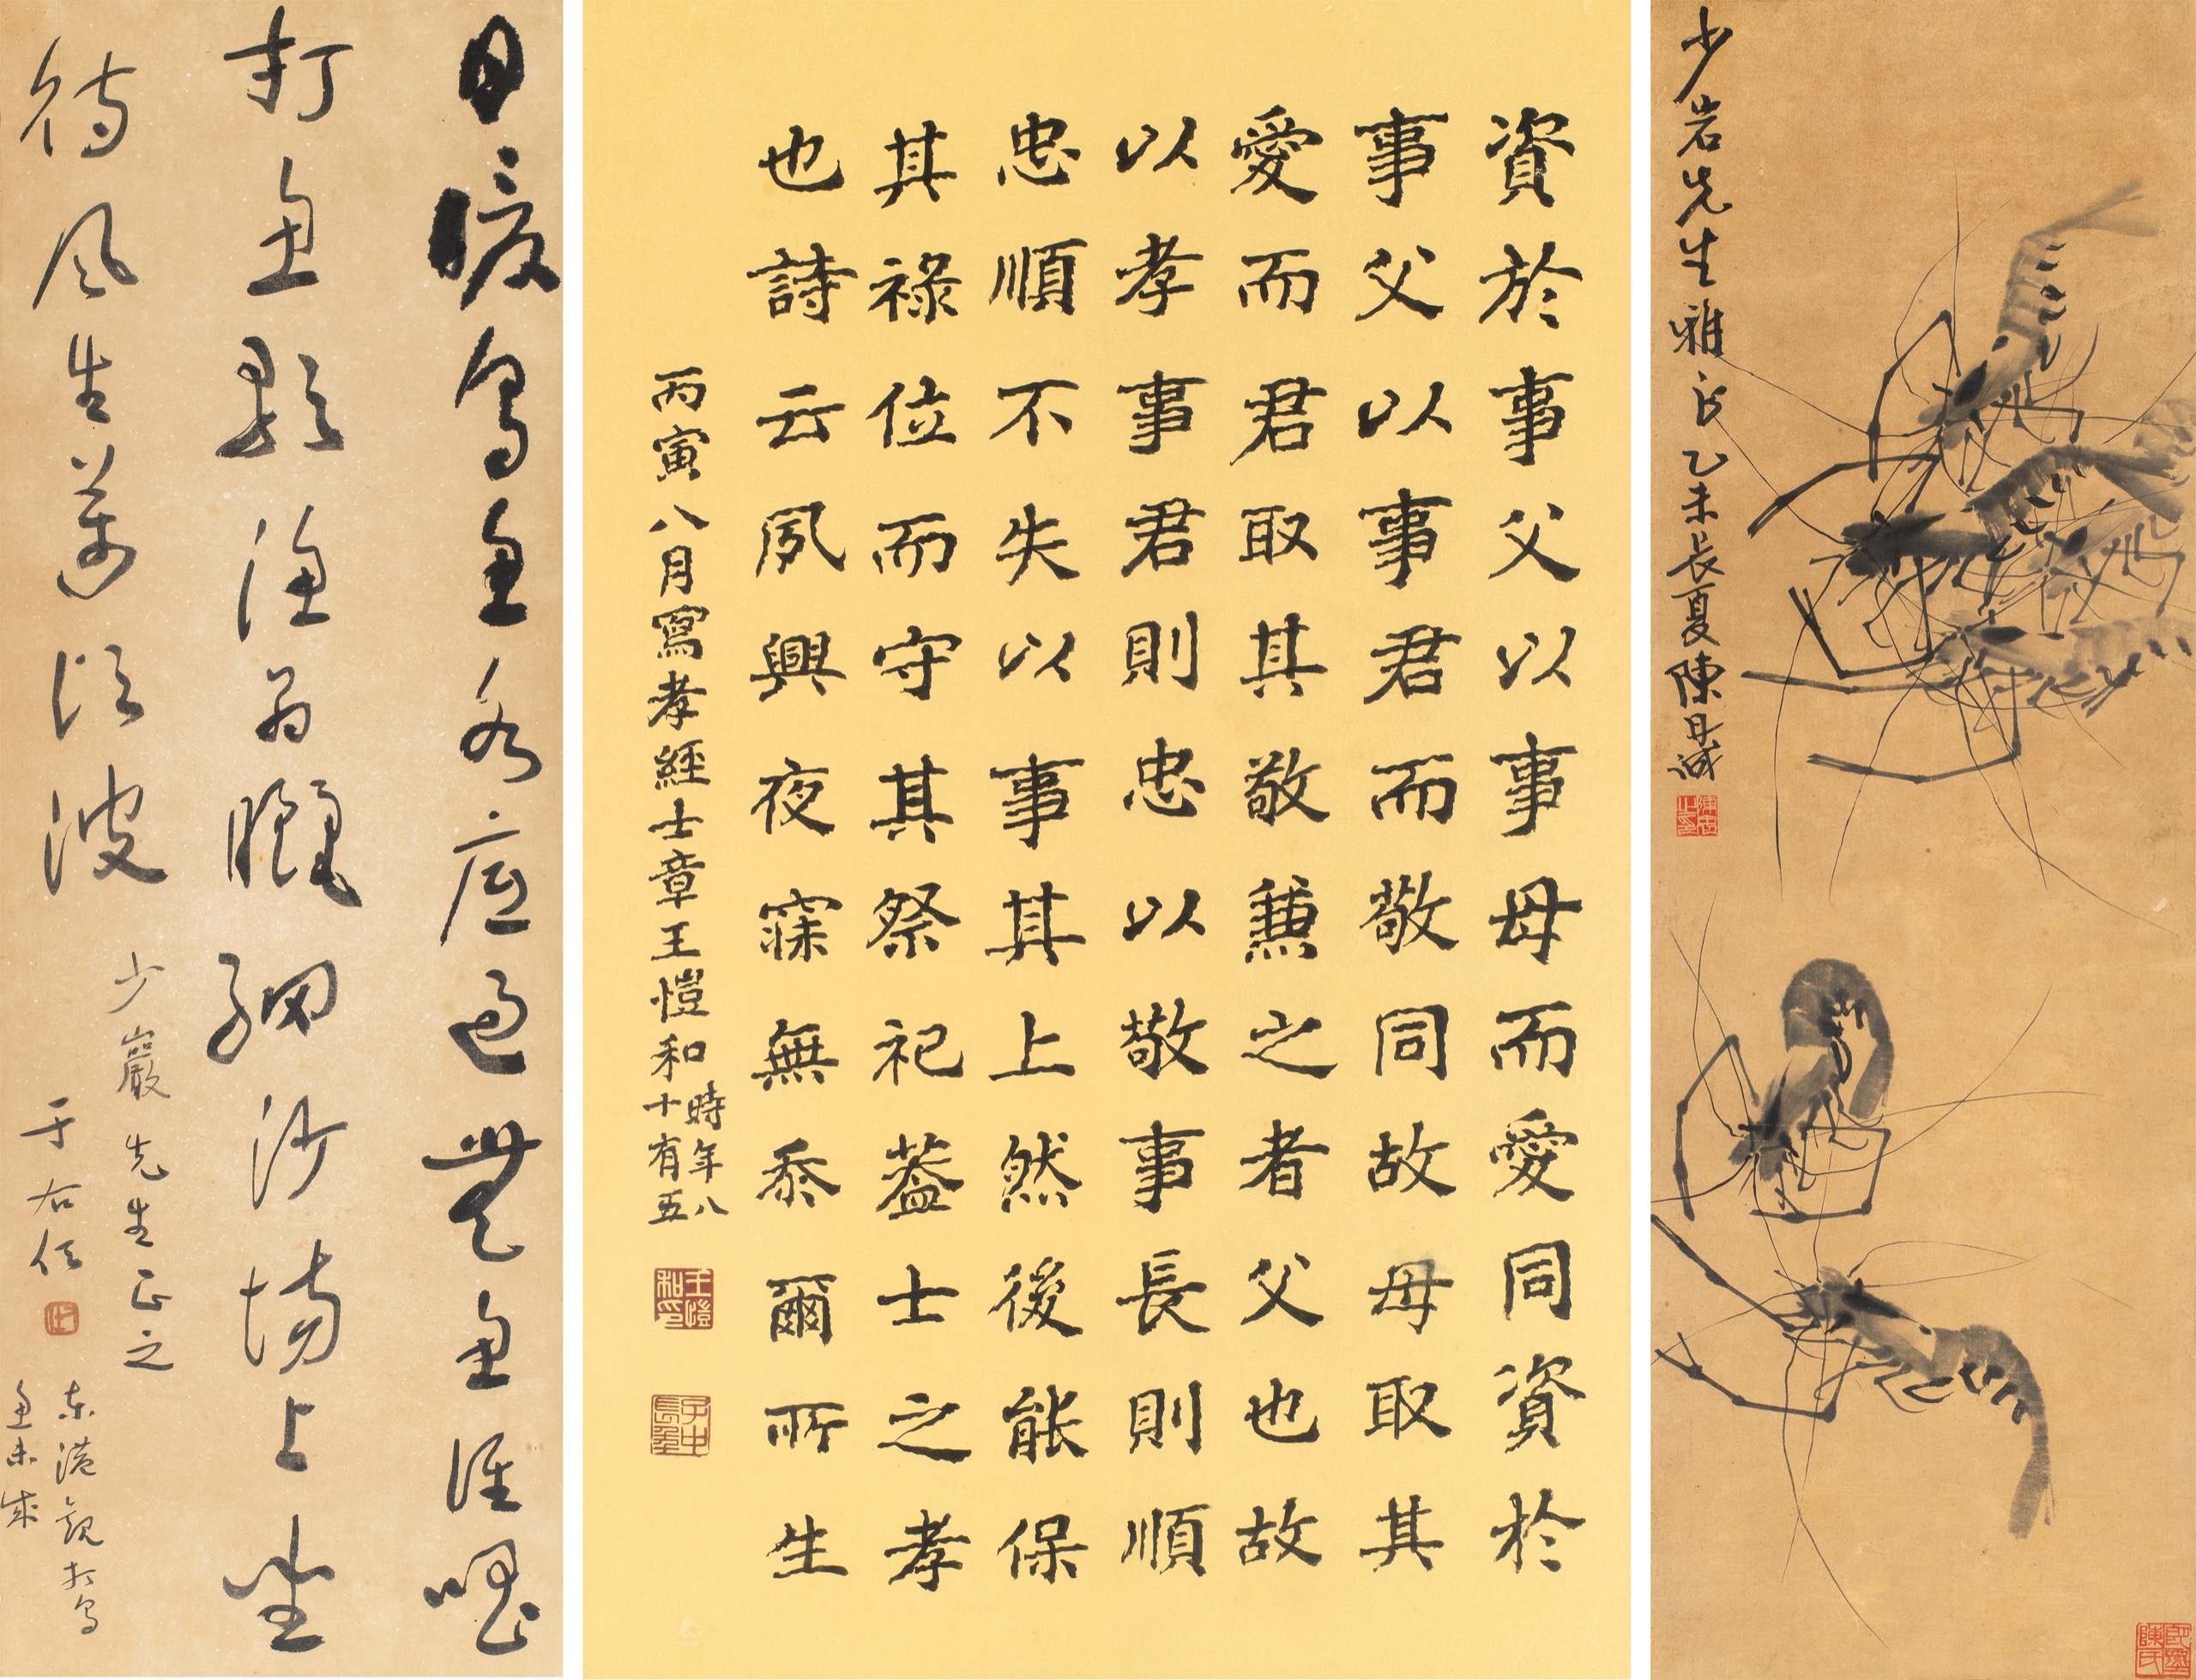 日暖烏魚應過無魚誰唱
打魚歌漁翁曬網沙場上坐
待風生萬頃波
少巖先生正之
于右任
東港觀打烏
魚未成
資於事父以事母而愛同資於
事父以事君而敬同故母取其
愛而君取其敬兼之者父也故
以孝事君則忠以敬事長則順
忠順不失以事其上然後能保
其祿位而守其祭祀蓋士之孝
也詩云夙興夜寐無忝爾所生
丙寅八月寫孝經士章王愷和時年八十有五
王愷和印
少岩先生雅正乙未長夏陳丹誠
即墨陳氏